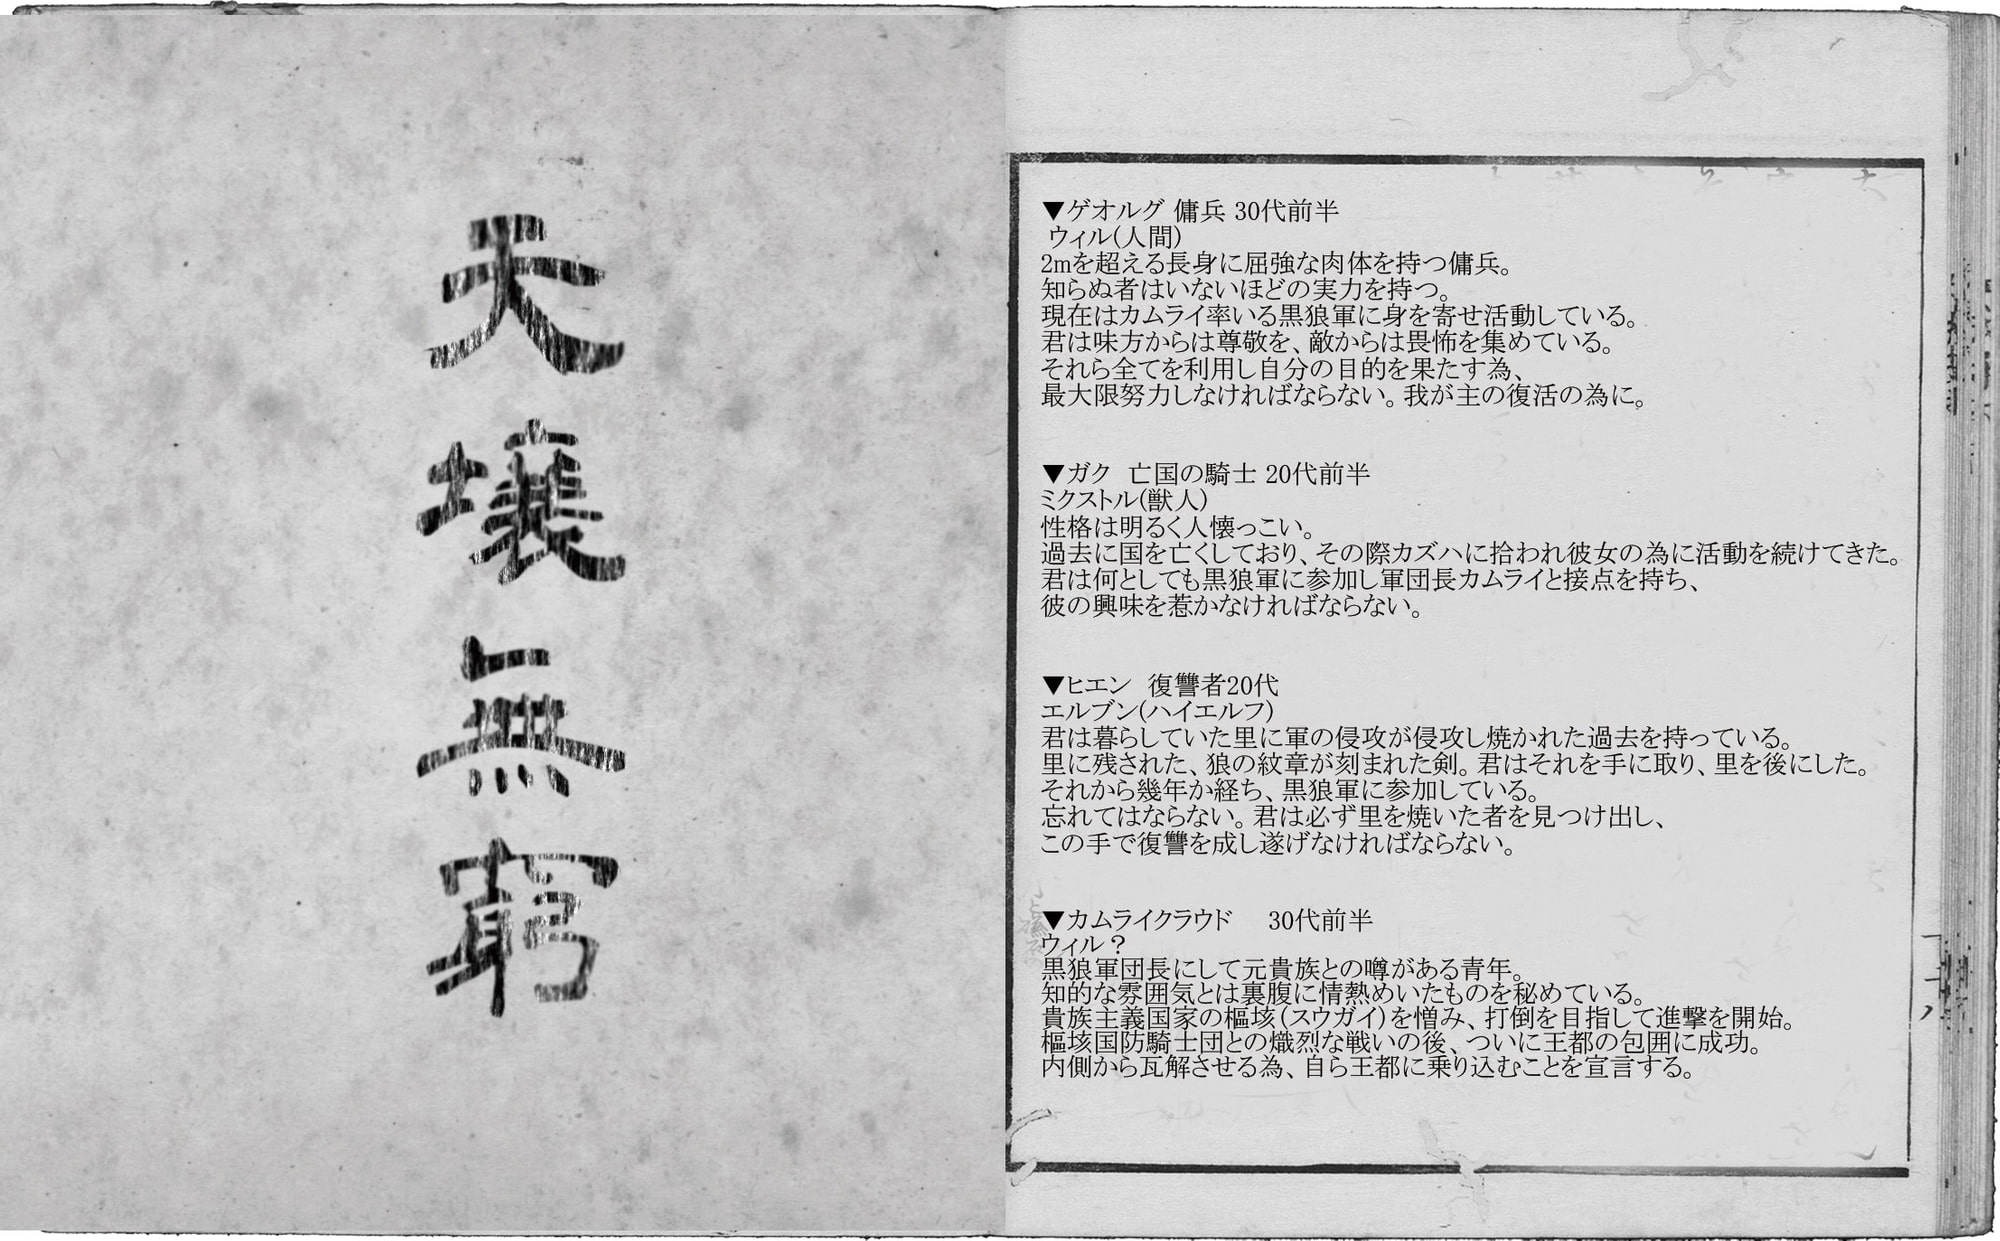 天壌無窮
▼ゲオルグ 傭兵 30代前半
ウィル(人間)
2mを超える長身に屈強な肉体を持つ傭兵。
知らぬ者はいないほどの実力を持つ。
現在はカムライ率いる黒狼軍に身を寄せ活動している。
君は味方からは尊敬を、敵からは畏怖を集めている。
それら全てを利用し自分の目的を果たす為、
最大限努力しなければならない。我が主の復活の為に。
▼ガク 亡国の騎士 20代前半
ミクストル(獣人)
性格は明るく人懐っこい。
過去に国を亡くしており、その際カズハに拾われ彼女の為に活動を続けてきた。
君は何としても黒狼軍に参加し軍団長カムライと接点を持ち、
彼の興味を惹かなければならない。
▼ヒエン 復讐者20代
エルブン(ハイエルフ)
君は暮らしていた里に軍の侵攻が侵攻し焼かれた過去を持っている。
里に残された、狼の紋章が刻まれた剣。君はそれを手に取り、里を後にした。
それから幾年か経ち、黒狼軍に参加している。
忘れてはならない。君は必ず里を焼いた者を見つけ出し、
この手で復讐を成し遂げなければならない。
▼カムライクラウド 30代前半
ウィル？
黒狼軍団長にして元貴族との噂がある青年。
知的な雰囲気とは裏腹に情熱めいたものを秘めている。
貴族主義国家の樞垓(スウガイ)を憎み、打倒を目指して進撃を開始。
樞垓国防騎士団との熾烈な戦いの後、ついに王都の包囲に成功。
内側から瓦解させる為、自ら王都に乗り込むことを宣言する。